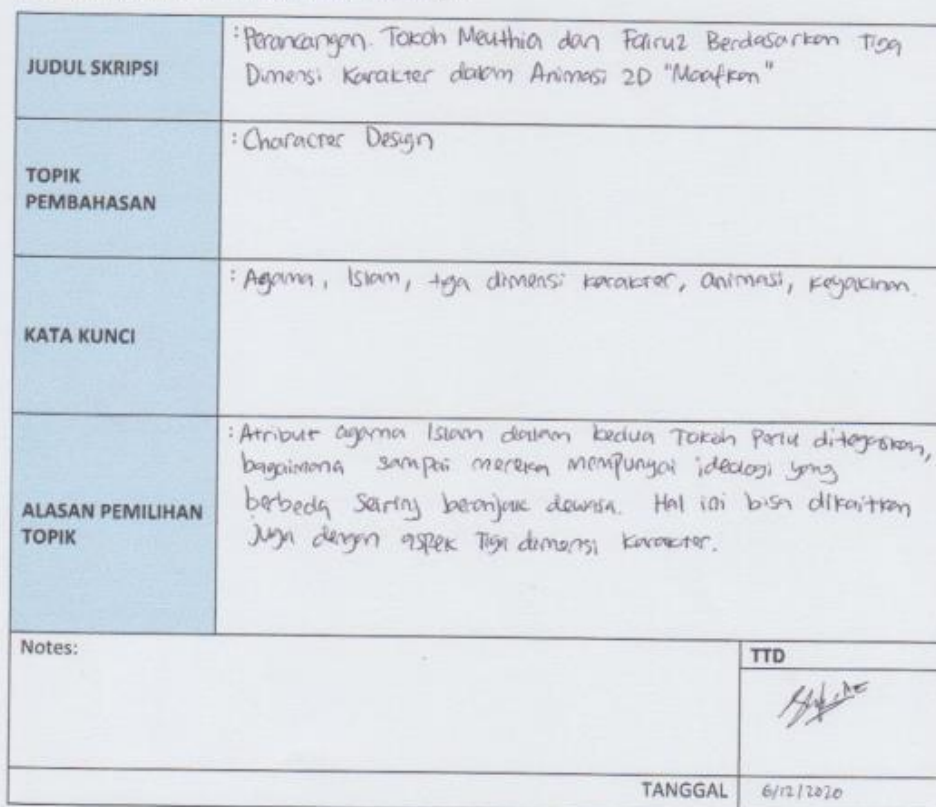 JUDUL SKRIPSI
: Perancangan Tokoh Meuthia dan Fairuz Berdasarkan Tiga
Dimensi Karakter dalam Animasi 2D "Maafkan"
TOPIK
PEMBAHASAN
: Character Design
KATA KUNCI
: Agama, Islam, tiga dimensi karakter, animasi, keyakinan.
ALASAN PEMILIHAN
TOPIK
: Atribut agama Islam dalam kedua Tokoh Perlu ditegaskan,
bagaimana sampai mereka mempunyai ideologi yang
berbeda Seiring beranjak dewasa. Hal ini bisa dikaitkan
Juga dengan aspek Tiga dimensi Karakter.
Notes:
TTD
TANGGAL
6/12/2020